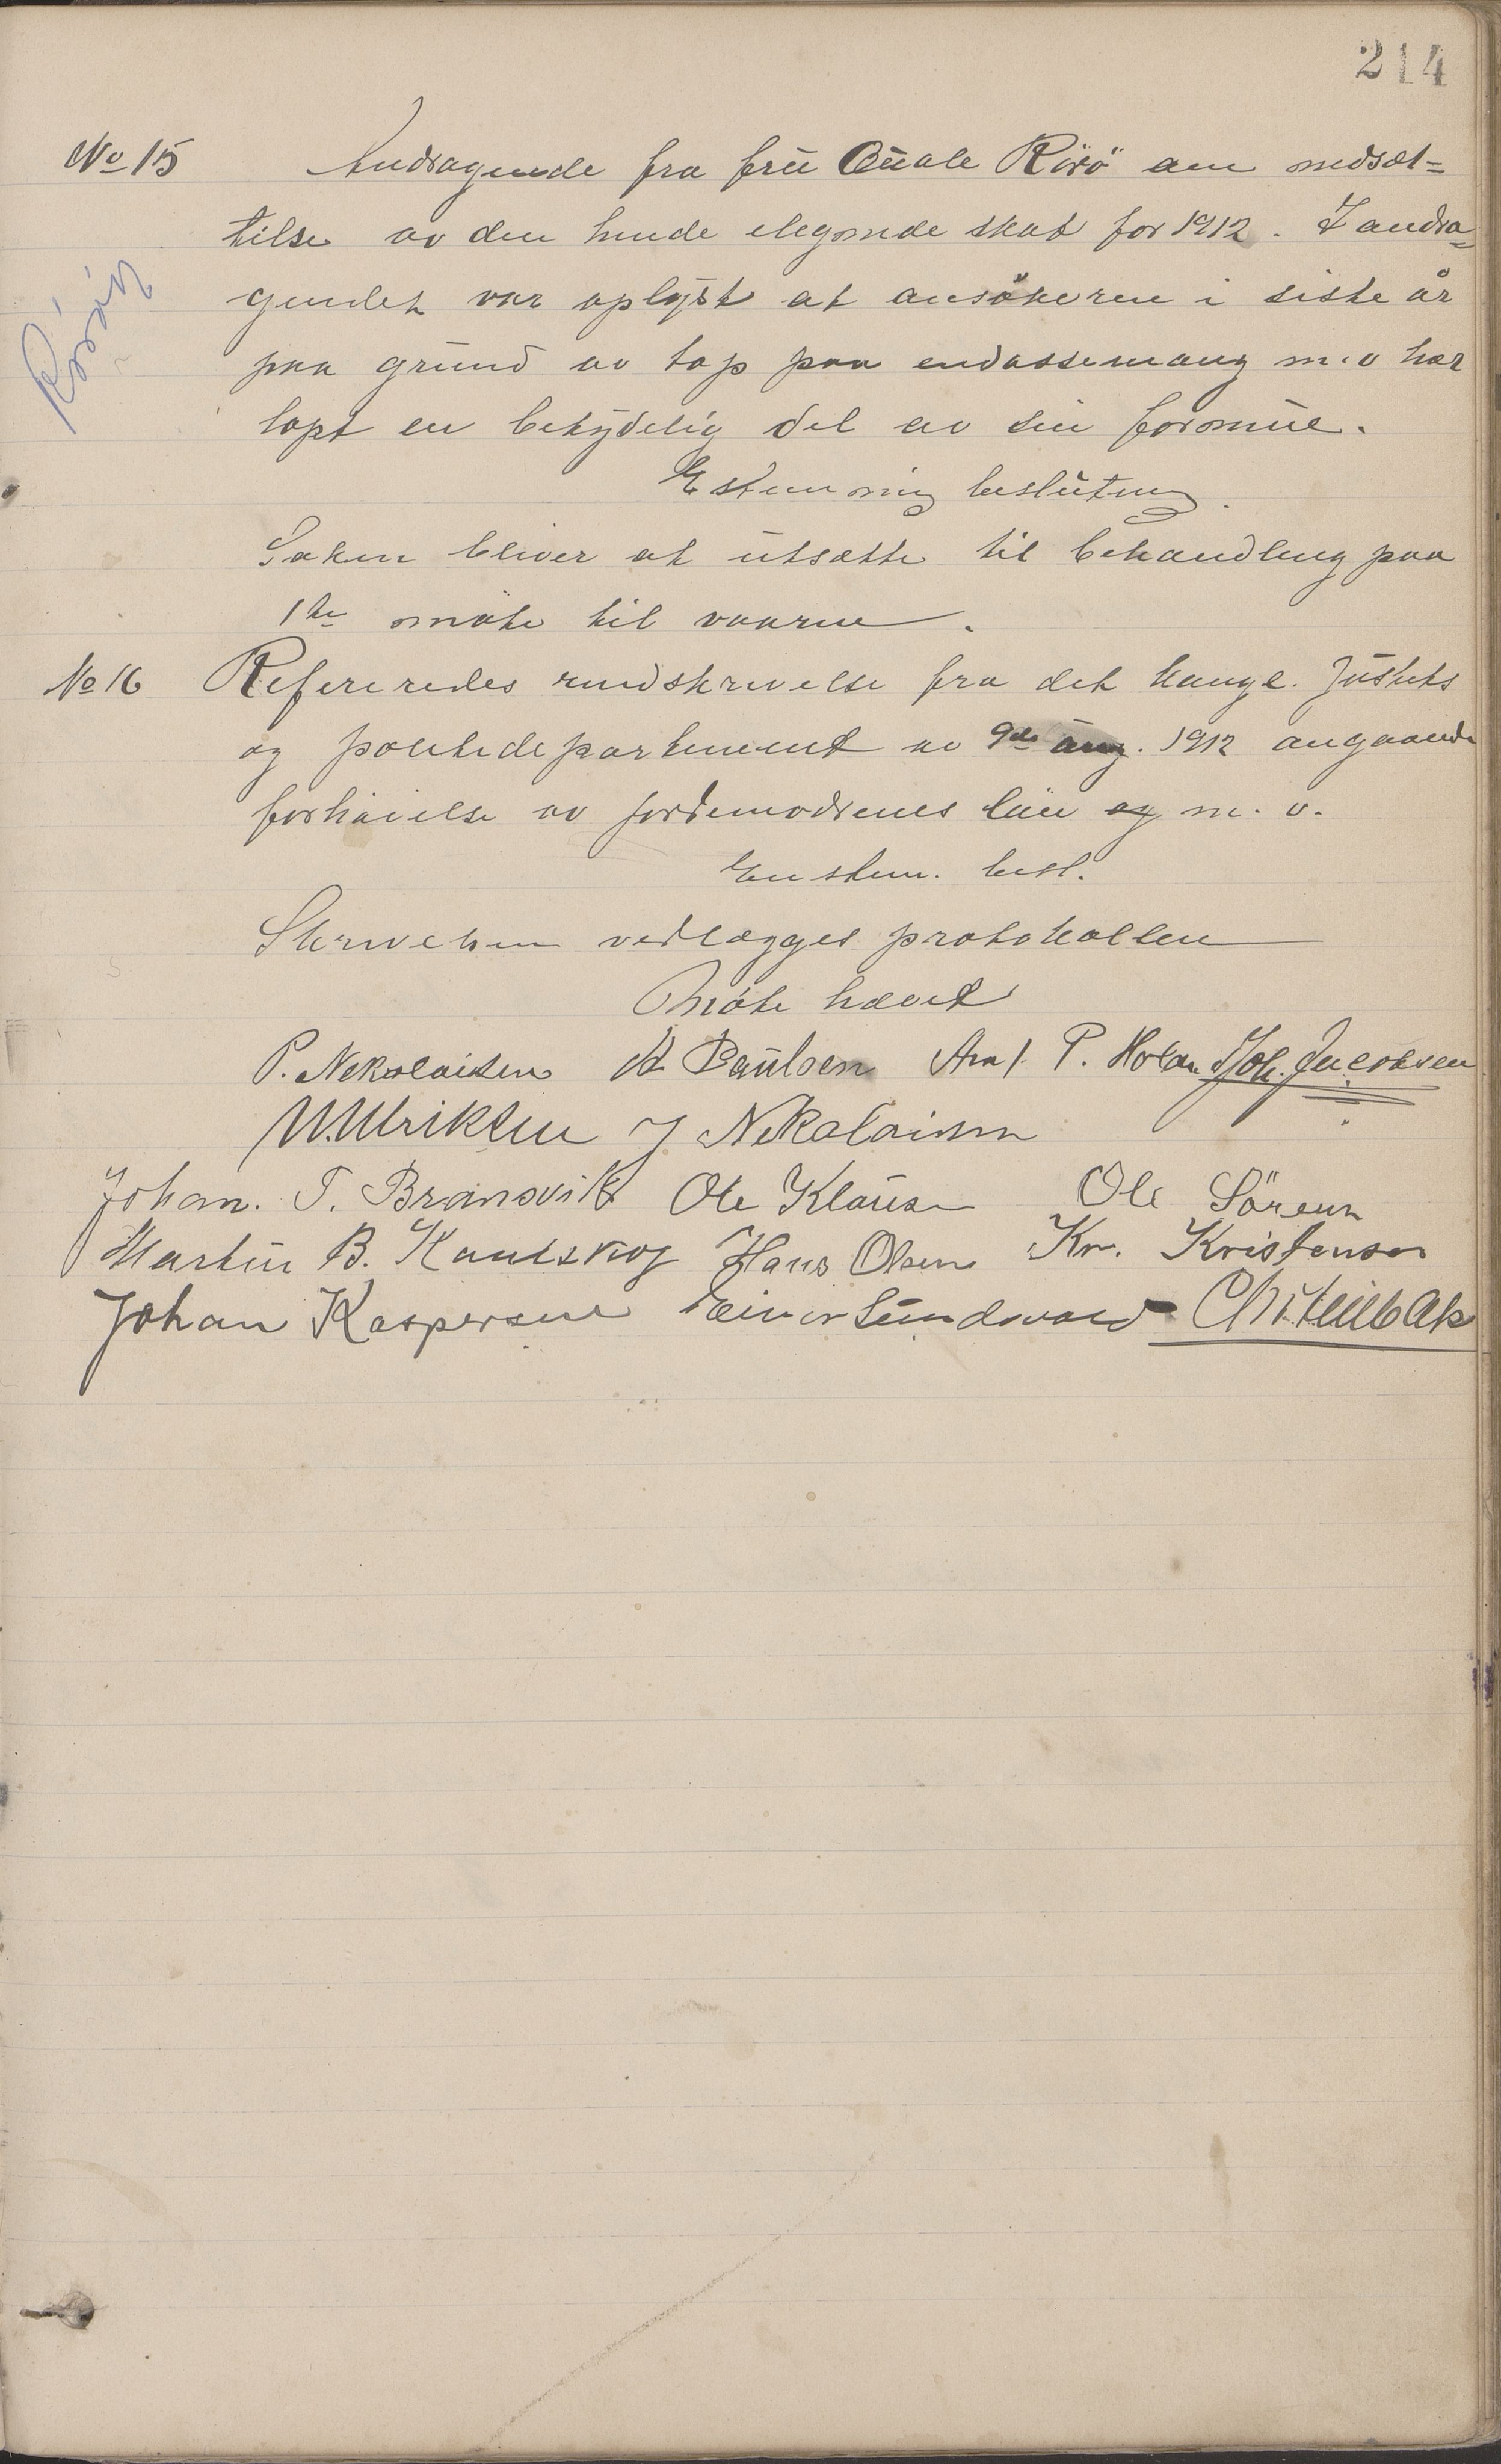 214
No 15 Andragende fra frü Qüale Rörö om nedsæt=
telse av den hende ilegnede skat for 1912. I andra=
gendet var oplyst at ansökeren i siste år
paa gründ av tap paa endossemang m.v har
tapt en betydelig del av sin formüe.
Rörö
Estemmig beslütning.
Saken bliver at ütsætte til behandling paa
1te möte til vaaren.
No 16 Refereredes rundskrivelse fra det kongl. Jüstits
og politidepartement av 9de aug. 1912 angaaende
forhöielse av jordemødrenes lön og m. v.
Enstem. besl.
Skrivelsen vedlægges protokollen
Möte hævet
P. Nekolaisen K Paülsen P. Holan Joh. Jacobsen
M. Ulriksen J Nekolaisen
Johan. T. Bransvik Ole Klaüsen Ole Sörensen
Martin B. Hans Olsen Kr. Kristensen
Johan Kaspersen Einar Sündsvold